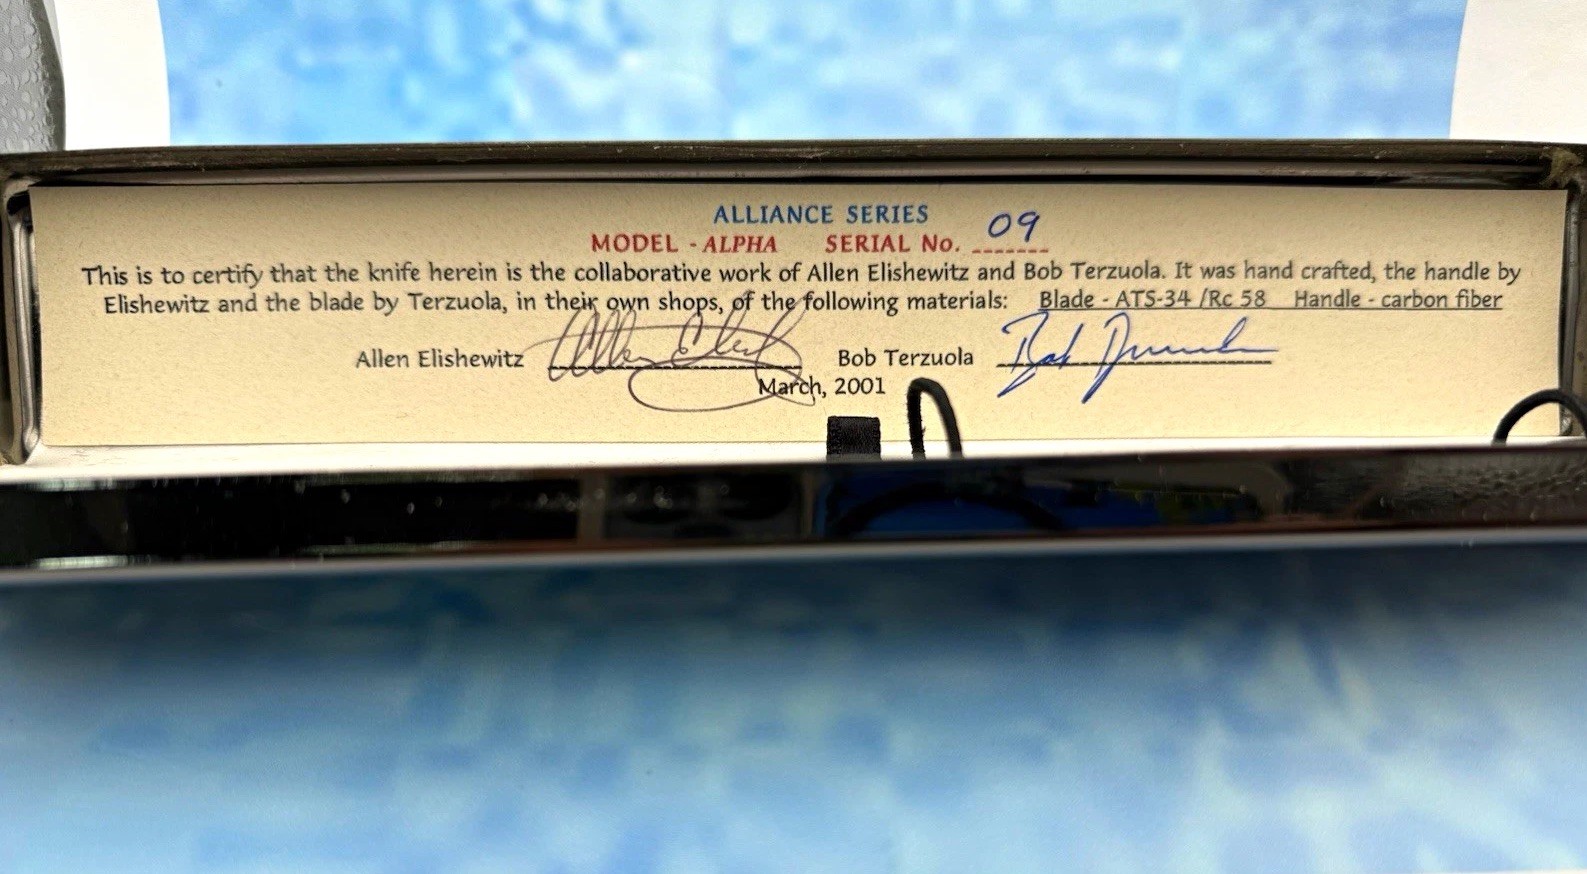 ALLIANCE SERIES
MODEL - ALPHA SERIAL No. 09
This is to certify that the knife herein is the collaborative work of Allen Elishewitz and Bob Terzuola. It was hand crafted, the handle by
Elishewitz and the blade by Terzuola, in their own shops, of the following materials: Blade - ATS-34 /Rc 58 Handle - carbon fiber
Allen Elishewitz Allen Elish Bob Terzuola Bob Terzuola
March, 2001